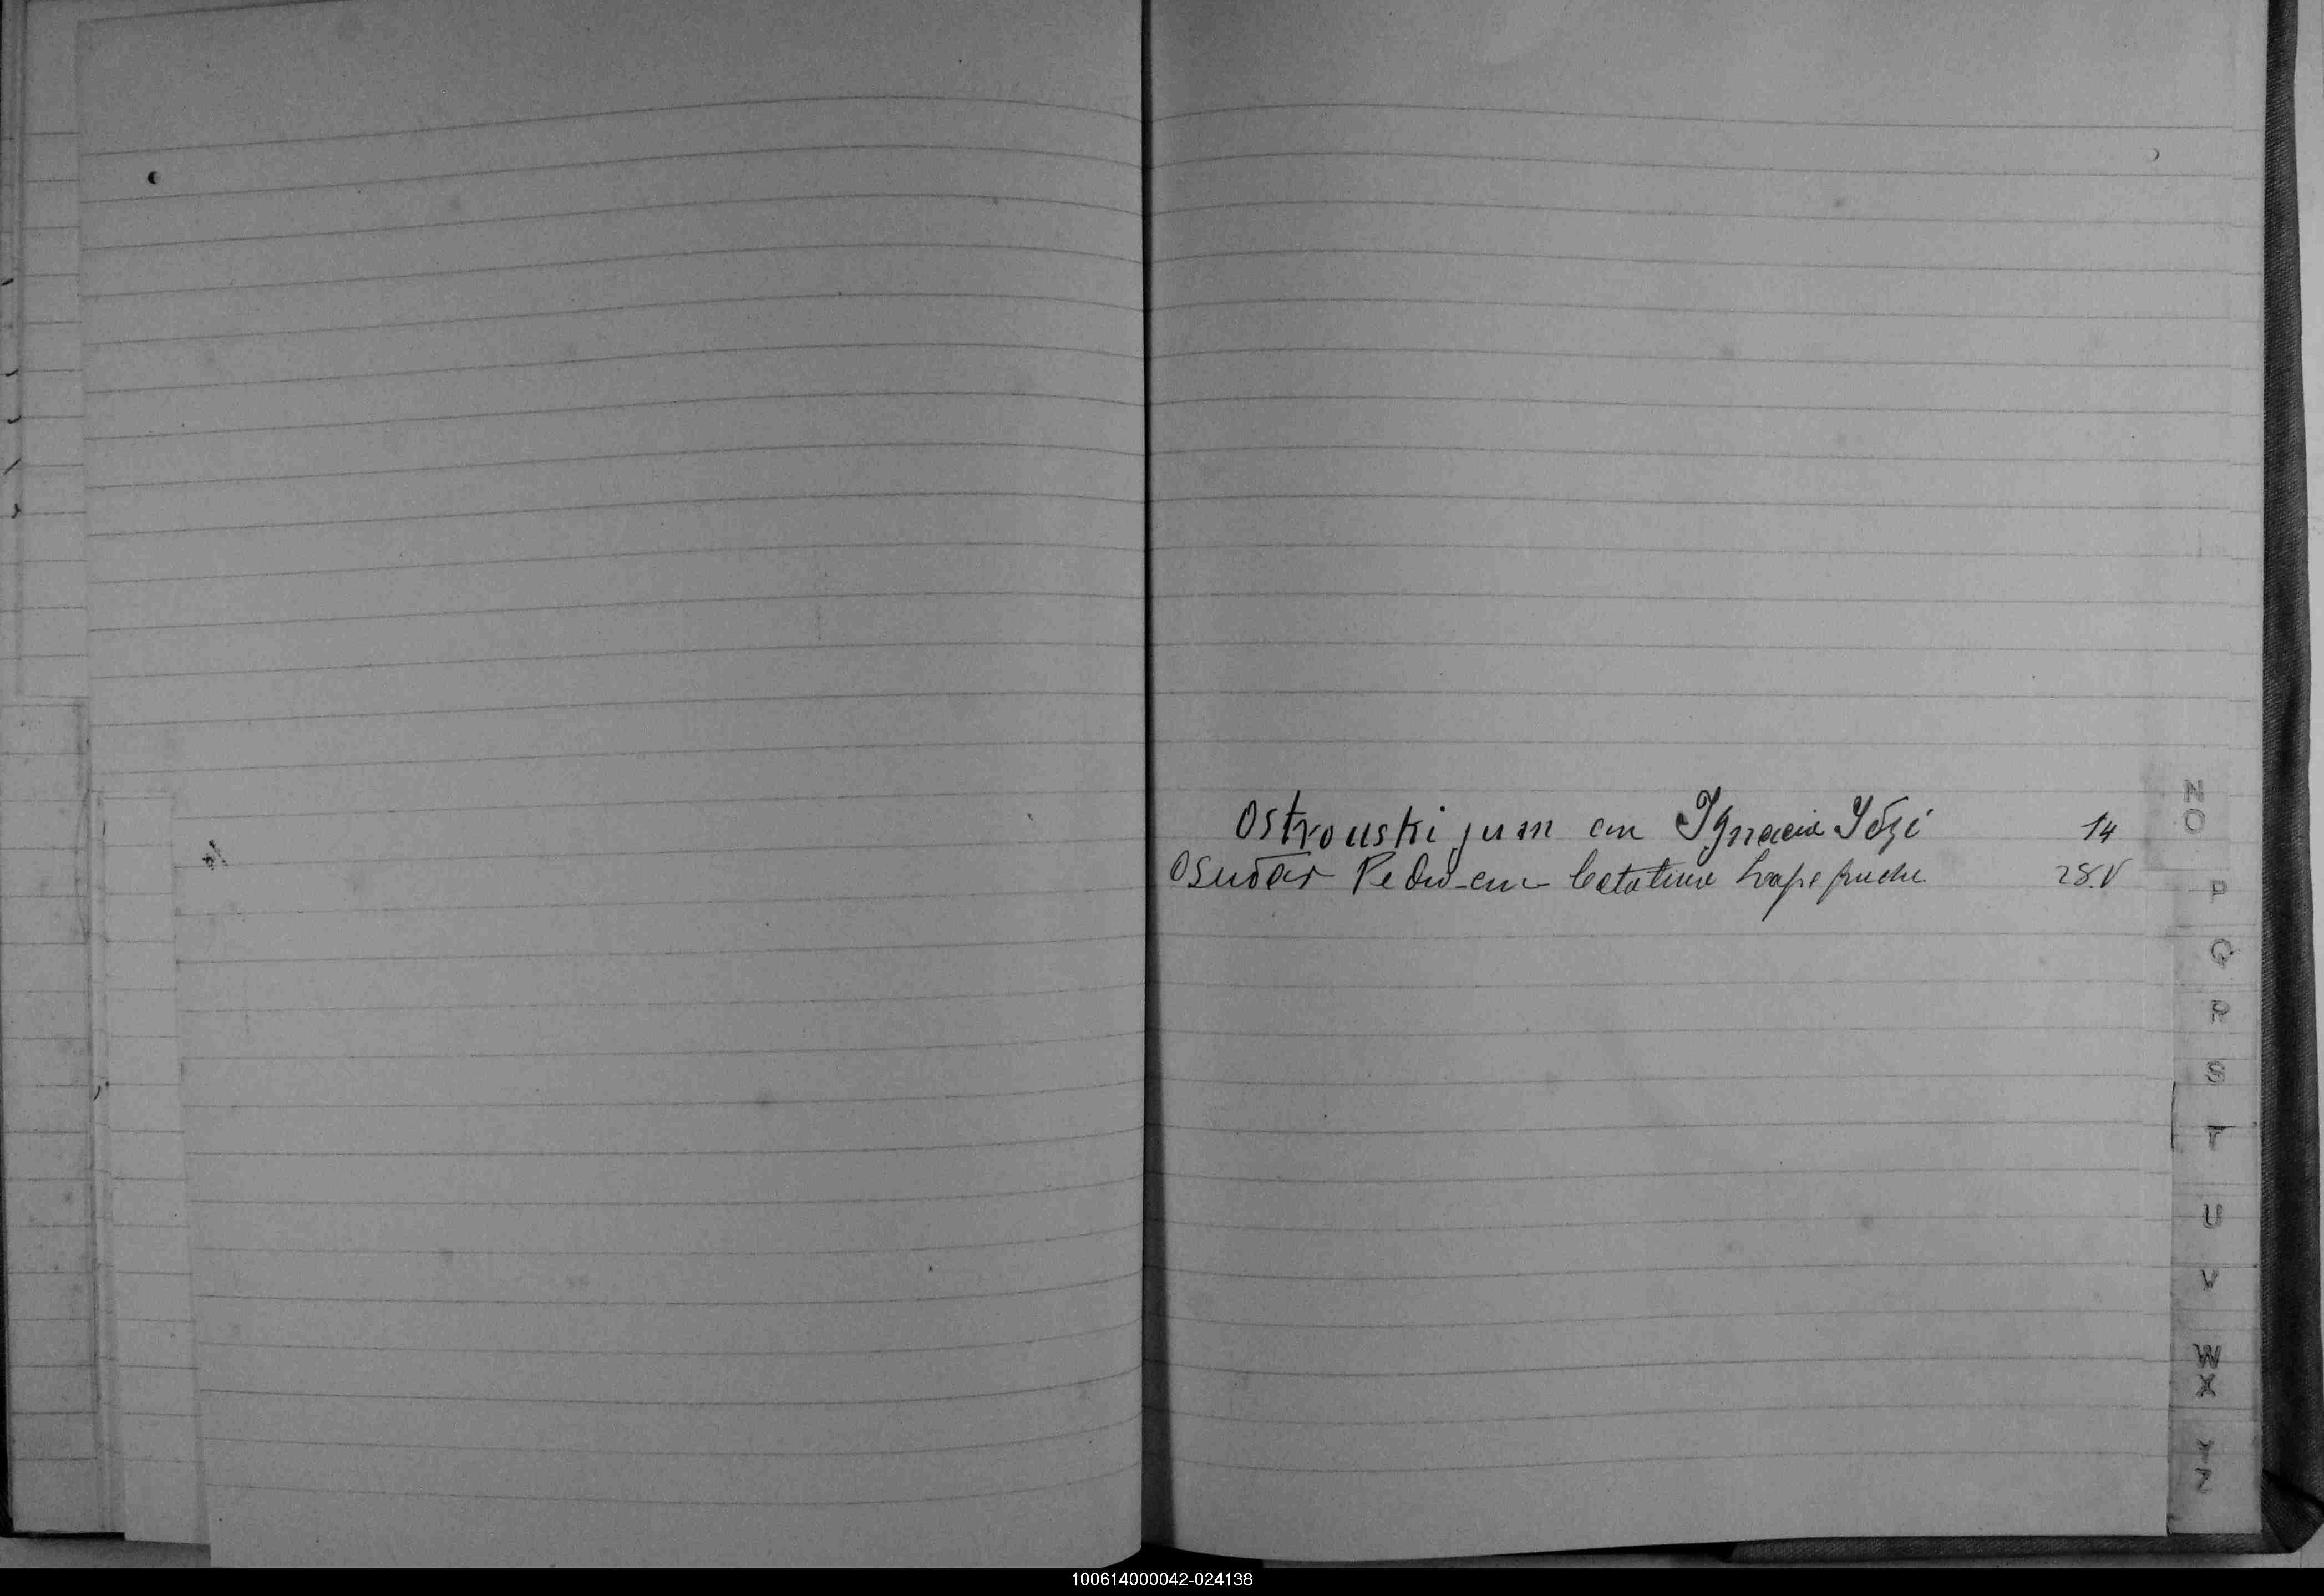 Ostrouski Juan con Ignacia Yógi 14
Osudar Pedro con Catalina 28.V
N
O
P
Q
R
S
T
U
V
W
X
Y
Z
100614000042-024138